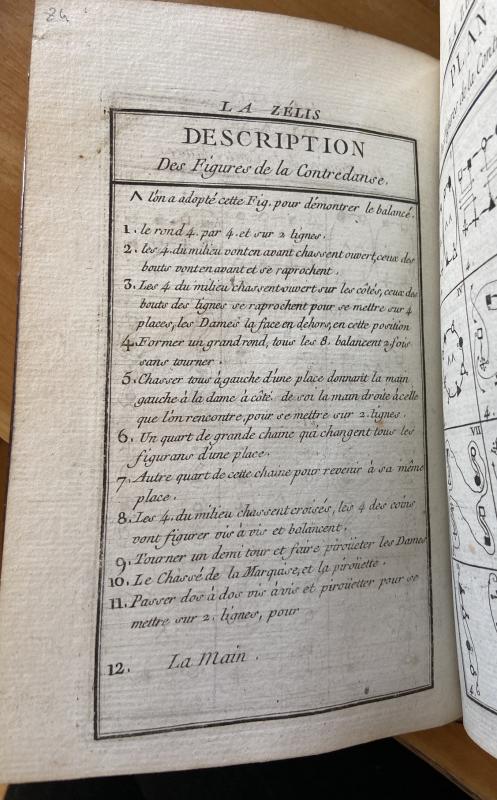 24
LA ZÉLIS
DESCRIPTION
Des Figures de la Contredanse.
Λ l'on a adopté cette Fig. pour démontrer le balancé.
1. le rond 4. par 4. et sur 2 lignes.
2. les 4. du milieu vont en avant chassent ouvert, ceux des
bouts vont en avant et se raprochent.
3. Les 4 du milieu chassent ouvert sur les côtés, ceux des
bouts des lignes se raprochent pour se mettre sur 4
places, les Dames la face en dehors, en cette position
4. Former un grand rond, tous les 8. balancent 2 fois
sans tourner.
5. Chasser tous à gauche d'une place donnant la main
gauche à la dame à côté de soi la main droite à celle
que l'on rencontre, pour se mettre sur 2. lignes.
6. Un quart de grande chaine qui changent tous les
figurans d'une place.
7. Autre quart de cette chaine pour revenir à sa même
place.
8. Les 4. du milieu chassent croisés, les 4 des coins
vont figurer vis à vis et balancent.
9. Tourner un demi tour et faire piroüeter les Dames
10. Le Chassé de la Marquise, et la piroüette.
11. Passer dos à dos vis à vis et piroüetter pour se
mettre sur 2. lignes, pour
12. La Main.
PLAN
IV
VII